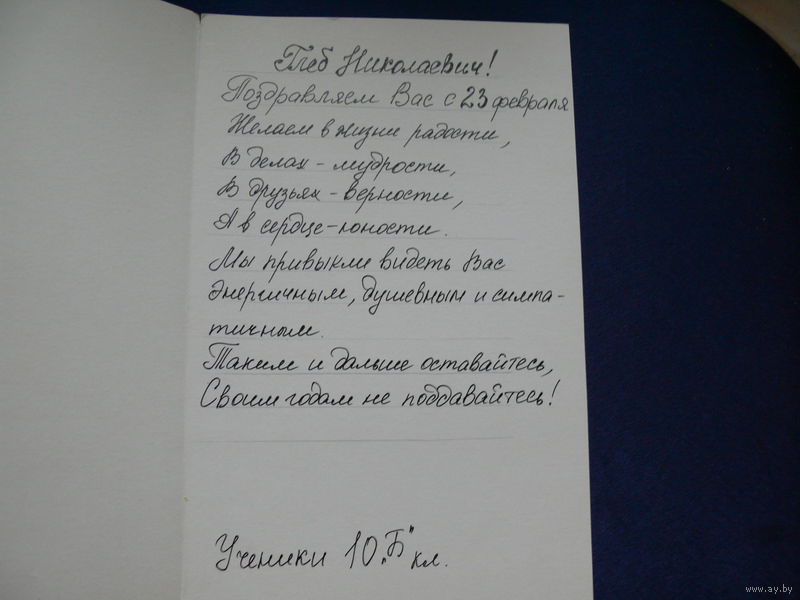 Глеб Николаевич!
Поздравляем Вас с 23 февраля
Желаем в жизни радости,
В делах - мудрости,
В друзьях - верности,
А в сердце - юности.
Мы привыкли видеть Вас
Энергичным, душевным и симпа-
тичным.
Таким и дальше оставайтесь,
Своим годам не поддавайтесь!
Ученики 10 „Б" кл.
www.ay.by